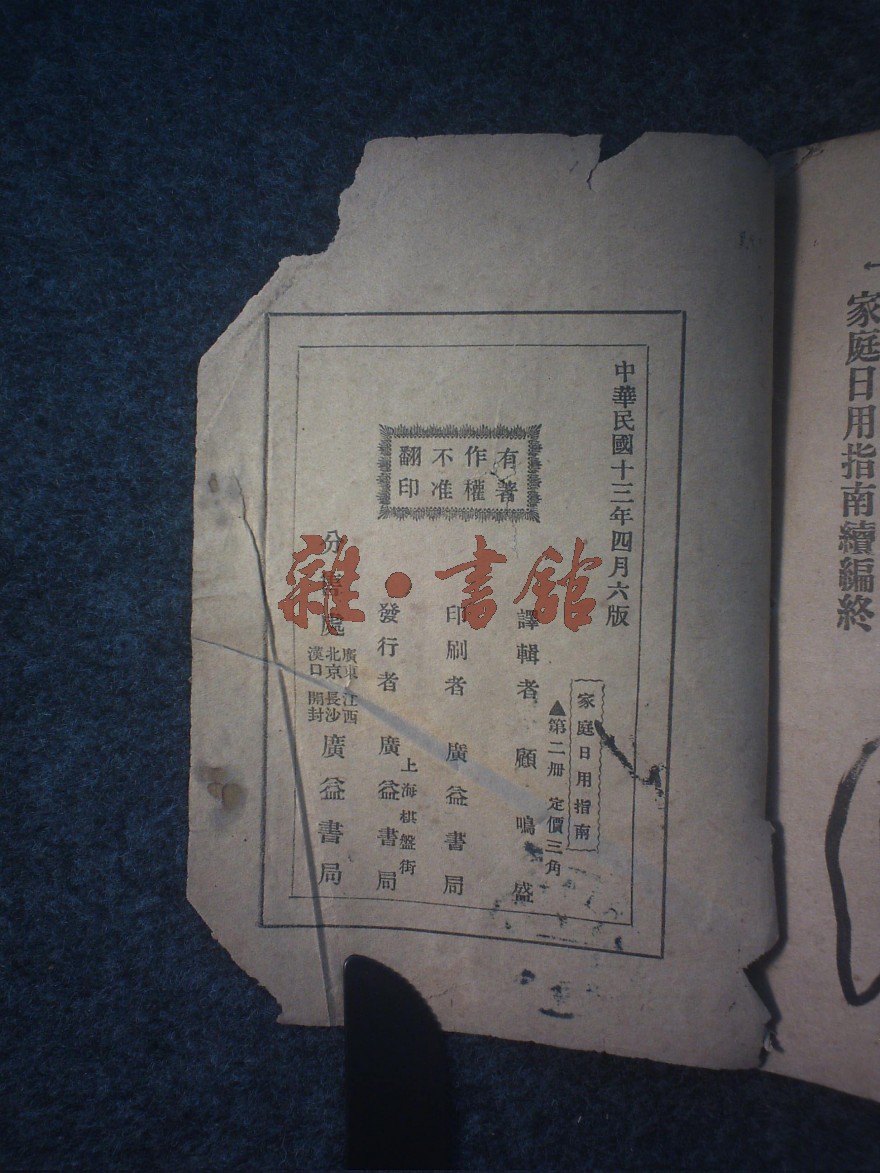 家庭日用指南續編終
中華民國十三年四月六版
有著
作權
不准
翻印
家庭日用指南
▲第二册 定價三角
譯輯者 顧鳴盛
印刷者 廣益書局
上海棋盤街
發行者 廣益書局
分售處
廣東 江西
北京 長沙
漢口 開封
廣益書局
雜·書館